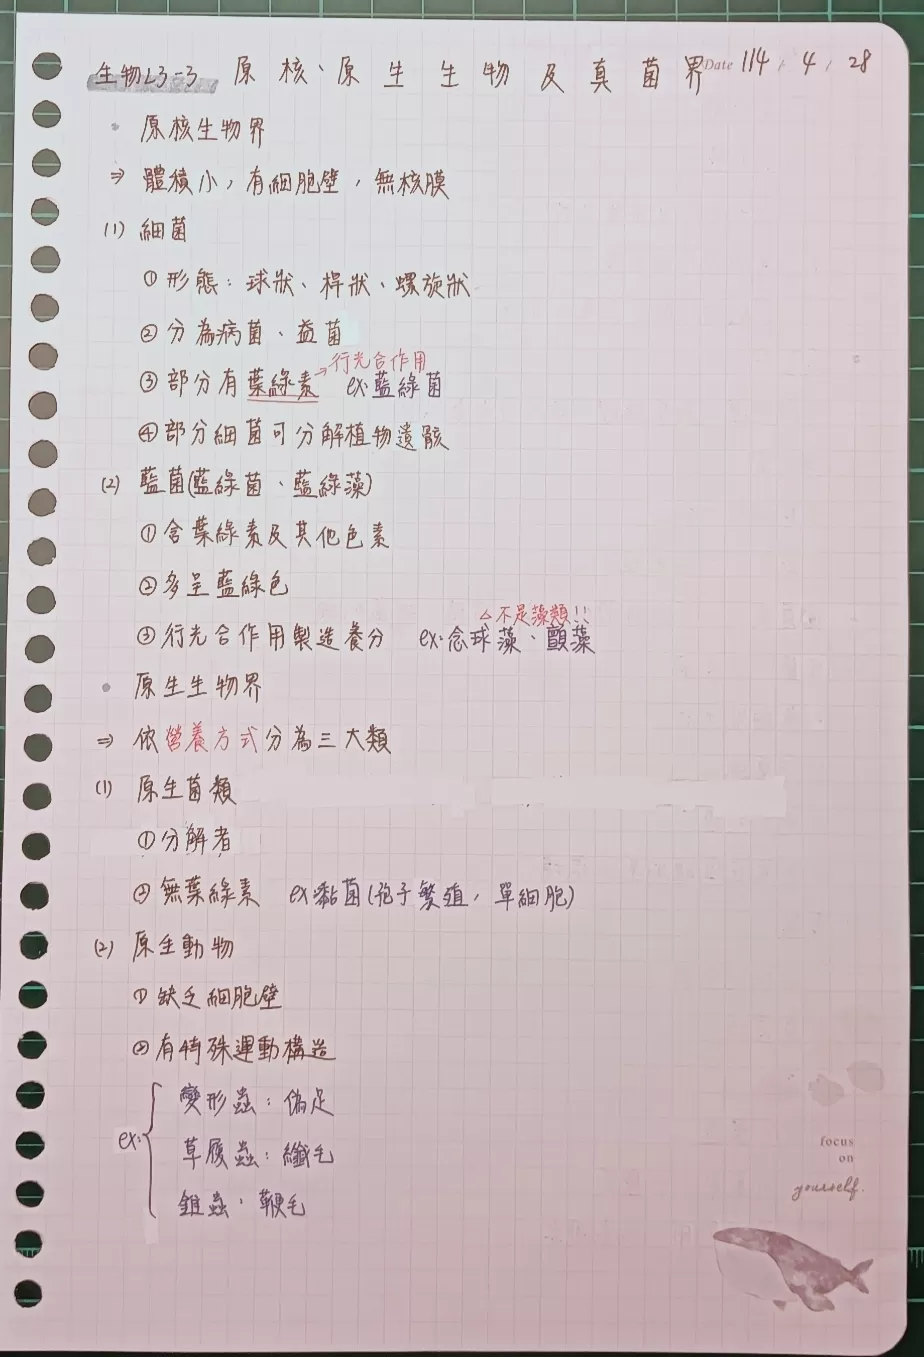 生物L3-3 原核、原生生物及真菌界 Date 114 / 4 / 28
• 原核生物界
⇒ 體積小，有細胞壁，無核膜
(1) 細菌
① 形態：球狀、桿狀、螺旋狀
② 分為病菌、益菌
→行光合作用
③ 部分有葉綠素 ex:藍綠菌
④ 部分細菌可分解植物遺骸
(2) 藍菌(藍綠菌、藍綠藻)
① 含葉綠素及其他色素
② 多呈藍綠色
△不是藻類!!
③ 行光合作用製造養分 ex:念球藻、顫藻
• 原生生物界
⇒ 依營養方式分為三大類
(1) 原生菌類
① 分解者
② 無葉綠素 ex:黏菌(孢子繁殖，單細胞)
(2) 原生動物
① 缺乏細胞壁
② 有特殊運動構造
ex:{ 變形蟲：偽足
草履蟲：纖毛
錐蟲：鞭毛
focus
on
yourself.